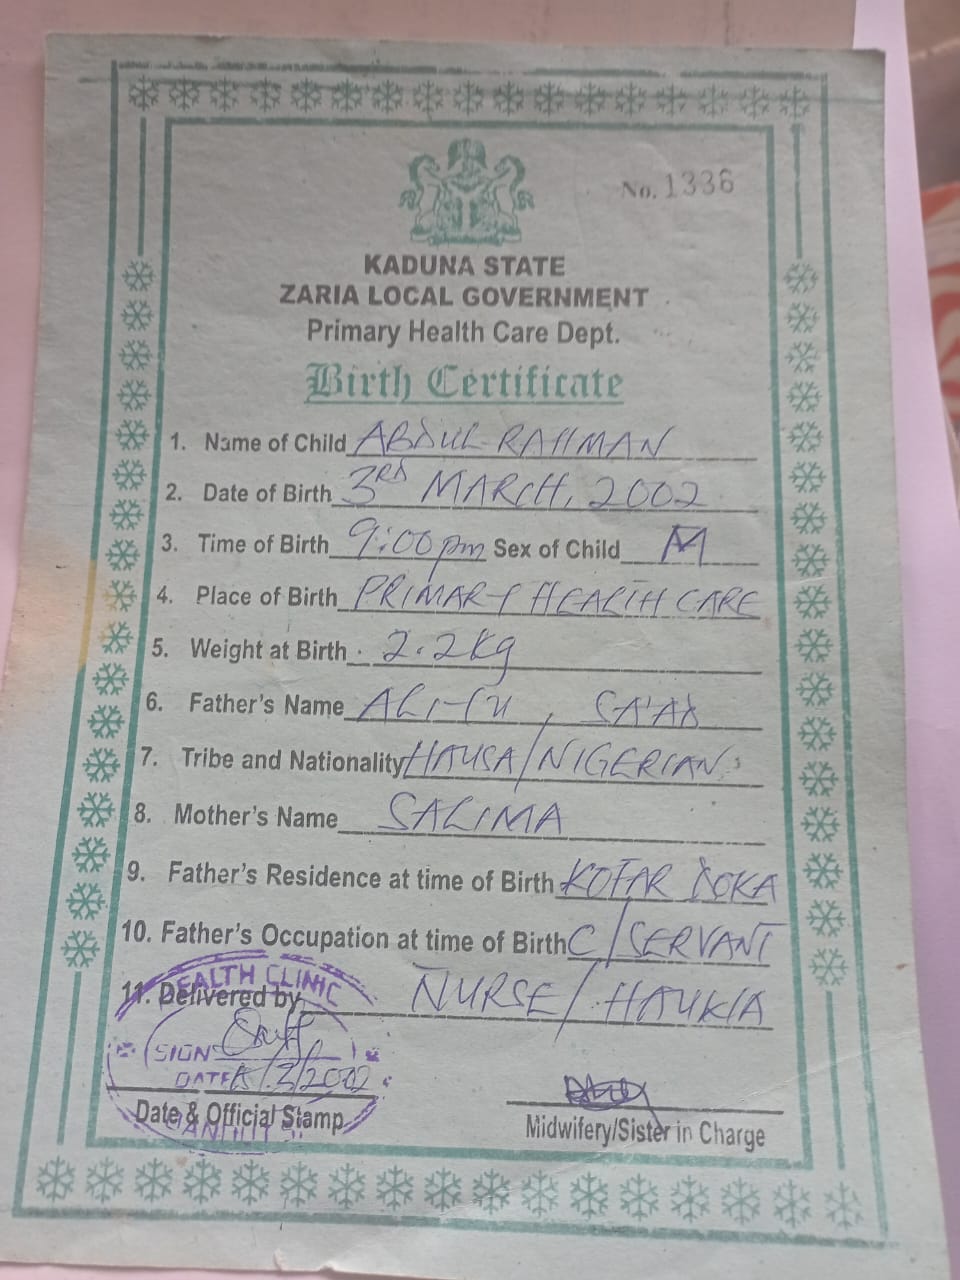 No. 1336
KADUNA STATE
ZARIA LOCAL GOVERNMENT
Primary Health Care Dept.
Birth Certificate
1. Name of Child ABDUL-RAHMAN
2. Date of Birth 3RD MARCH, 2002
3. Time of Birth 9:00pm Sex of Child M
4. Place of Birth PRIMARY HEALTH CARE
5. Weight at Birth 2.2kg
6. Father's Name ALIYU, SA'AD
7. Tribe and Nationality HAUSA/NIGERIAN
8. Mother's Name SALIMA
9. Father's Residence at time of Birth KOFAR DOKA
10. Father's Occupation at time of Birth C/SERVANT
11. Delivered by NURSE/
HEALTH CLINIC
SIGN
DATE /3/2002
Date & Official Stamp
Midwifery/Sister in Charge